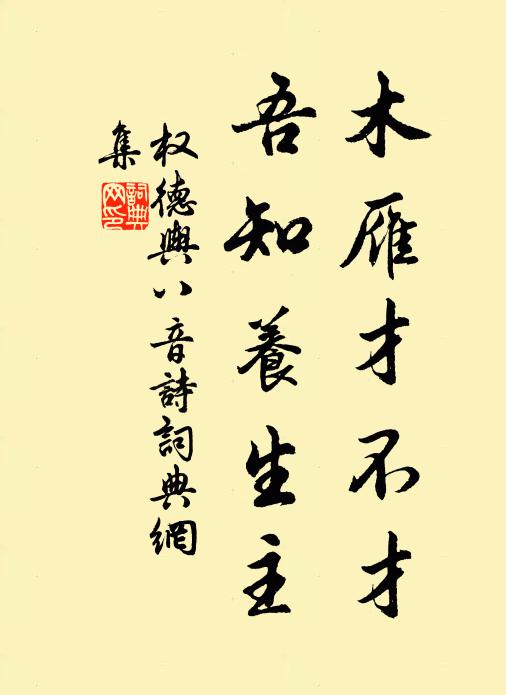 木雁才不才
吾知養生主
权德輿八音詩詞典網
集
詞典網印